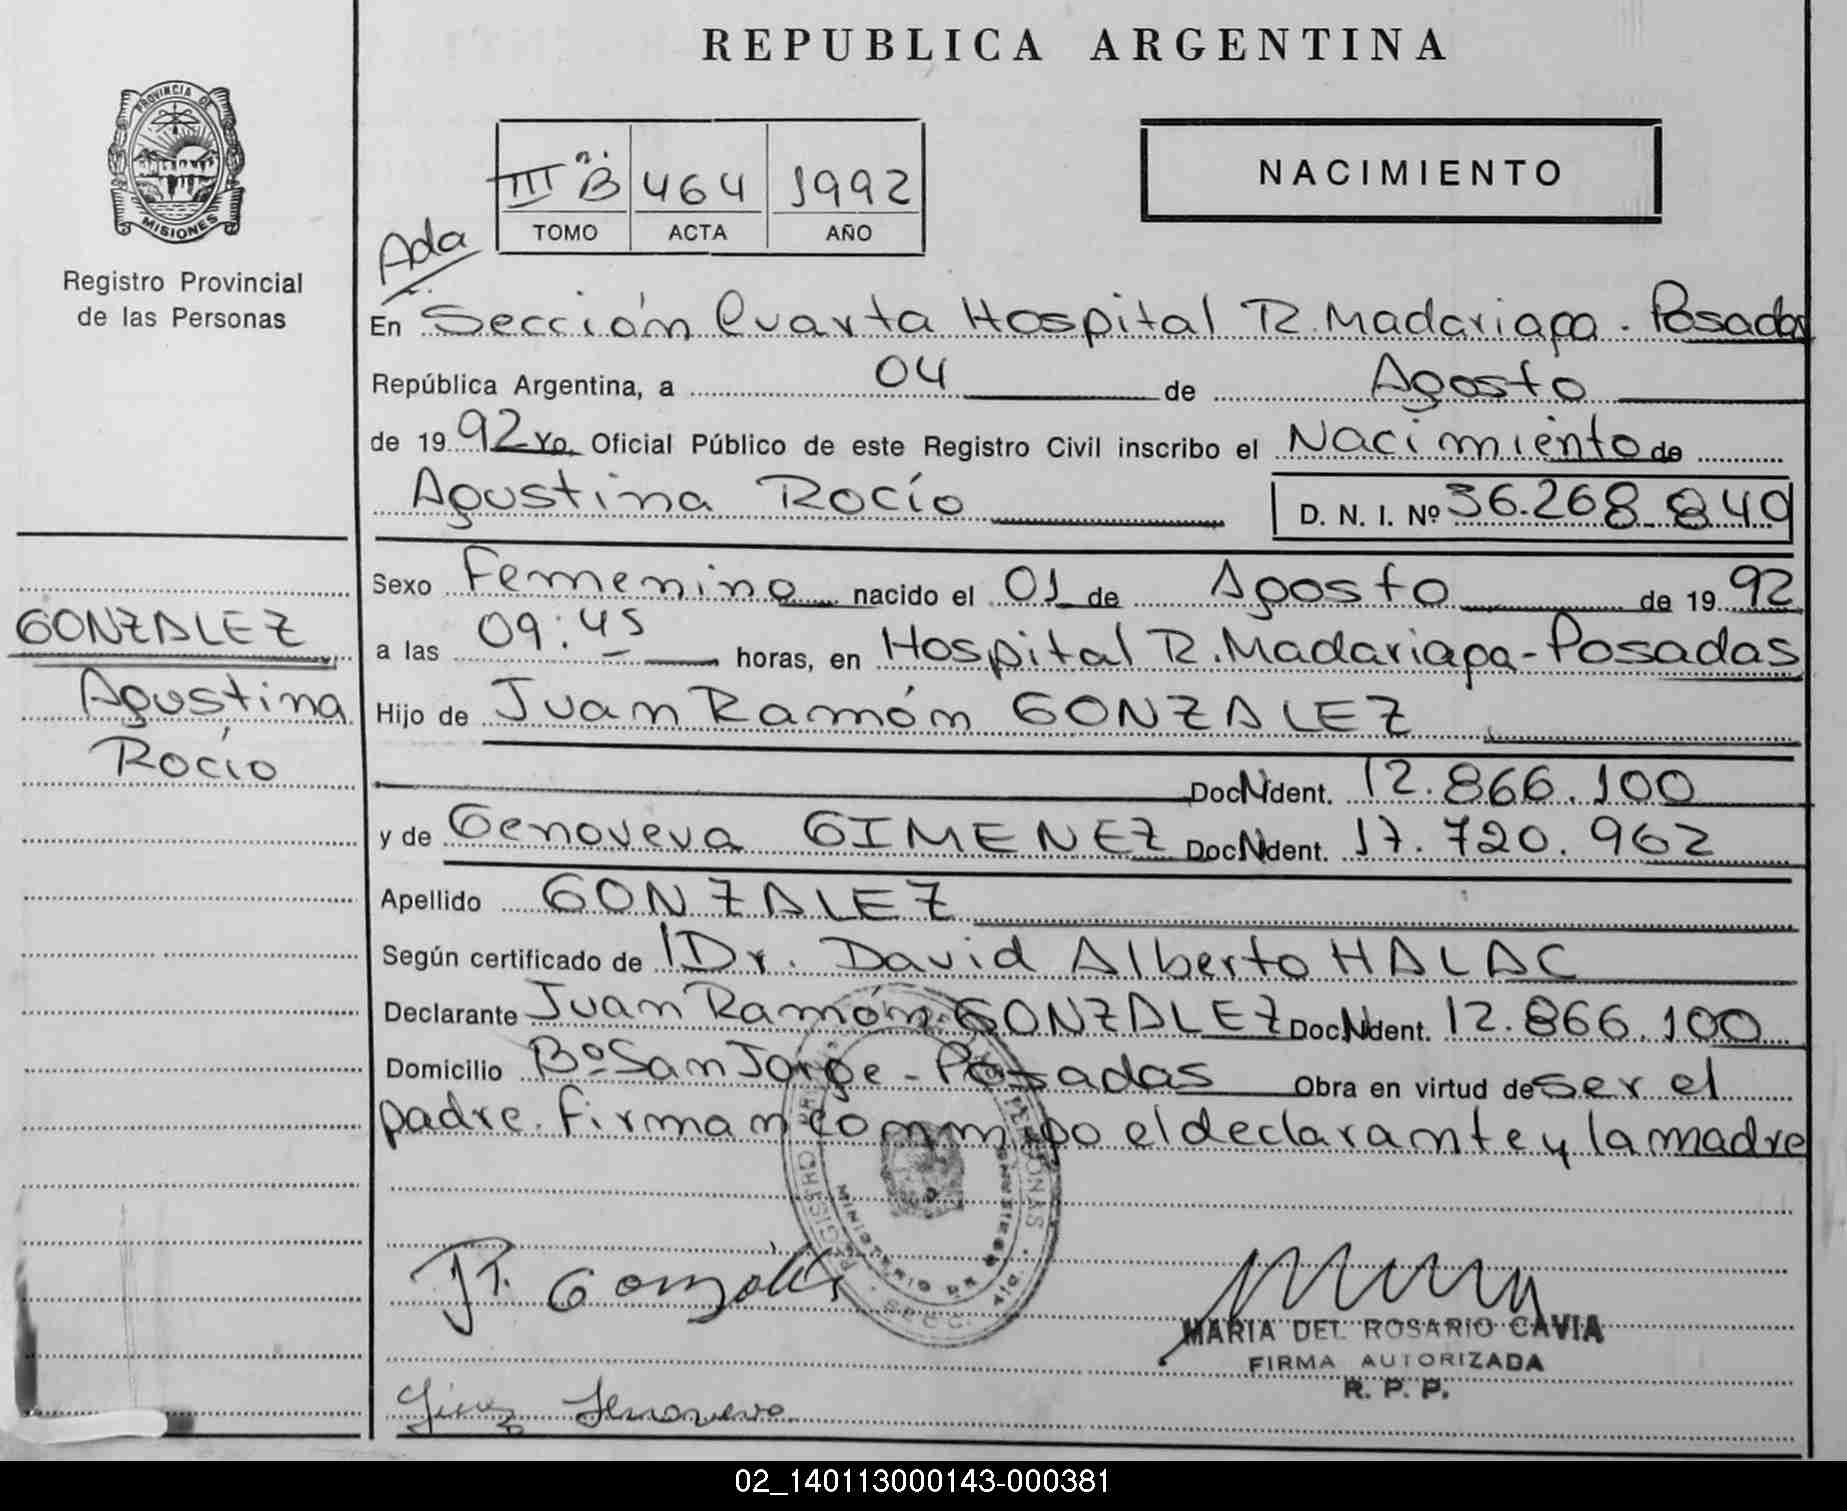 REPUBLICA ARGENTINA
PROVINCIA DE
MISIONES
Registro Provincial
de las Personas
III B 464 1992
TOMO ACTA AÑO
NACIMIENTO
Ada
En Sección Cuarta Hospital R. Madariaga - Posadas
República Argentina, a 04 de Agosto
de 1992 Yo, Oficial Público de este Registro Civil inscribo el Nacimiento de
Agustina Rocío D. N. I. Nº 36.268.840
Sexo Femenino nacido el 01 de Agosto de 1992
a las 09:45 horas, en Hospital R. Madariaga - Posadas
Hijo de Juan Ramón GONZALEZ
Doc N Ident. 12.866.100
y de Genoveva GIMENEZ Doc N Ident. 17.720.962
Apellido GONZALEZ
Según certificado de Dr. David Alberto HALAC
Declarante Juan Ramón GONZALEZ Doc N Ident. 12.866.100
Domicilio Bº San Jorge - Posadas Obra en virtud de ser el
padre. Firman conmigo el declarante y la madre
GONZALEZ
Agustina
Rocío
MINISTERIO DE
J R. Gonzáles
MARIA DEL ROSARIO CAVIA
FIRMA AUTORIZADA
R. P. P.
Genoveva
02_140113000143-000381